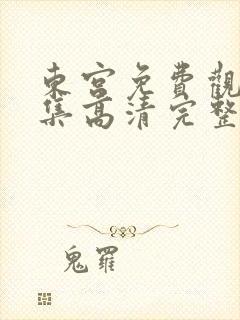 東宮免費觀
集高清完整
鬼羅